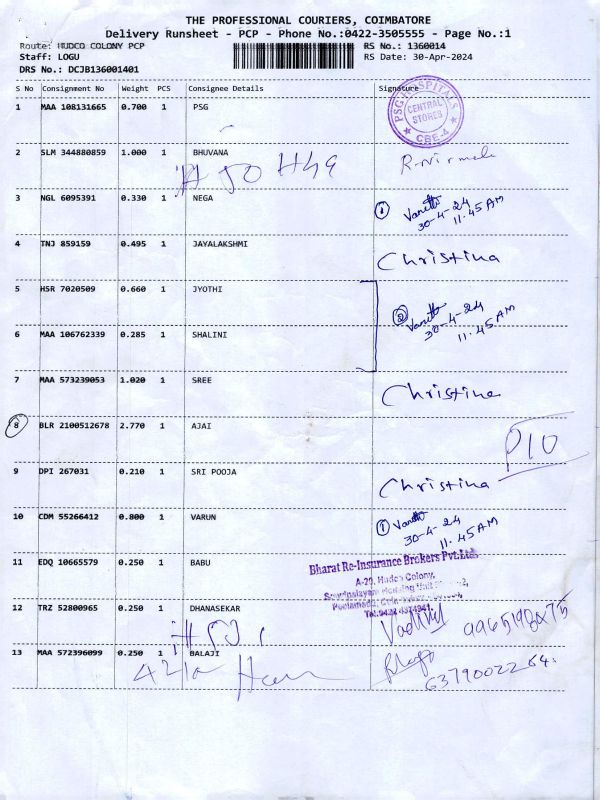 THE PROFESSIONAL COURIERS, COIMBATORE
Delivery Runsheet - PCP - Phone No.:0422-3505555 - Page No.:1
Route: HUDCO COLONY PCP RS No.: 1360014
Staff: LOGU RS Date: 30-Apr-2024
DRS No.: DCJB136001401
S No Consignment No Weight PCS Consignee Details Signature
1 MAA 108131665 0.700 1 PSG
PSG HOSPITALS
CENTRAL
STORES
CBE-4
2 SLM 344880859 1.000 1 BHUVANA R. Nirmala
3 NGL 6095391 0.330 1 NEGA
30-4-24
11.45AM
4 TNJ 859159 0.495 1 JAYALAKSHMI Christina
5 HSR 7020509 0.660 1 JYOTHI
2
30-4-24
11.45AM
6 MAA 106762339 0.285 1 SHALINI
7 MAA 573239053 1.020 1 SREE Christine
8 BLR 2100512678 2.770 1 AJAI
9 DPI 267031 0.210 1 SRI POOJA Christina
10 CDM 55266412 0.800 1 VARUN
1
30-4-24
11.45AM
11 EDQ 10665579 0.250 1 BABU
Bharat Re-Insurance Brokers Pvt.Ltd.
A-20, Hudco Colony,
12 TRZ 52800965 0.250 1 DHANASEKAR
13 MAA 572396099 0.250 1 BALAJI